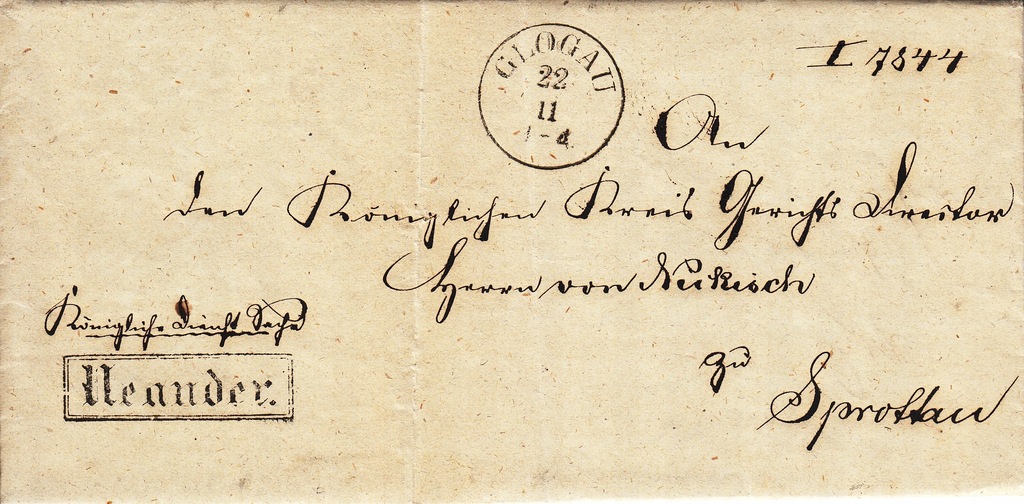 GLOGAU
22
11
-4
I 7844
An
den Königlichen Kreis Gerichts Director
Herrn von Neckisch
zu
Sprottau
Königliche Dienst Sache
Neander.